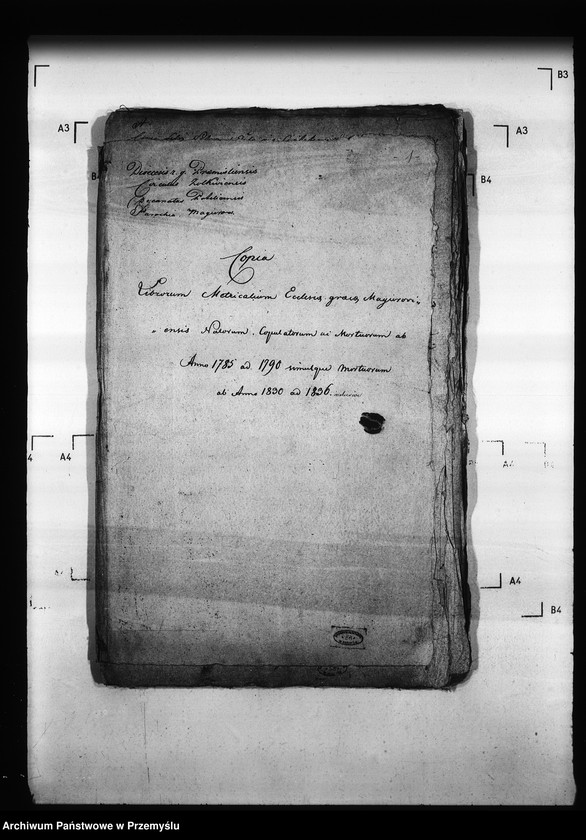 - 1 -
Dioecesis r. g. Premisliensis
Circulus Zolkieviensis
Decanatus
Parochia Magierow
Copia
Librorum Metricalium Ecclesiae graeco Magierovi,
ensis Natorum, Copulatorum ac Mortuorum ab
Anno 1785 ad 1790 simulque Mortuorum
ab Anno 1830 ad 1836.
B3
A3
A3
B4
B
A4
4
A4
B4
A4
B4
Archiwum Państwowe w Przemyślu